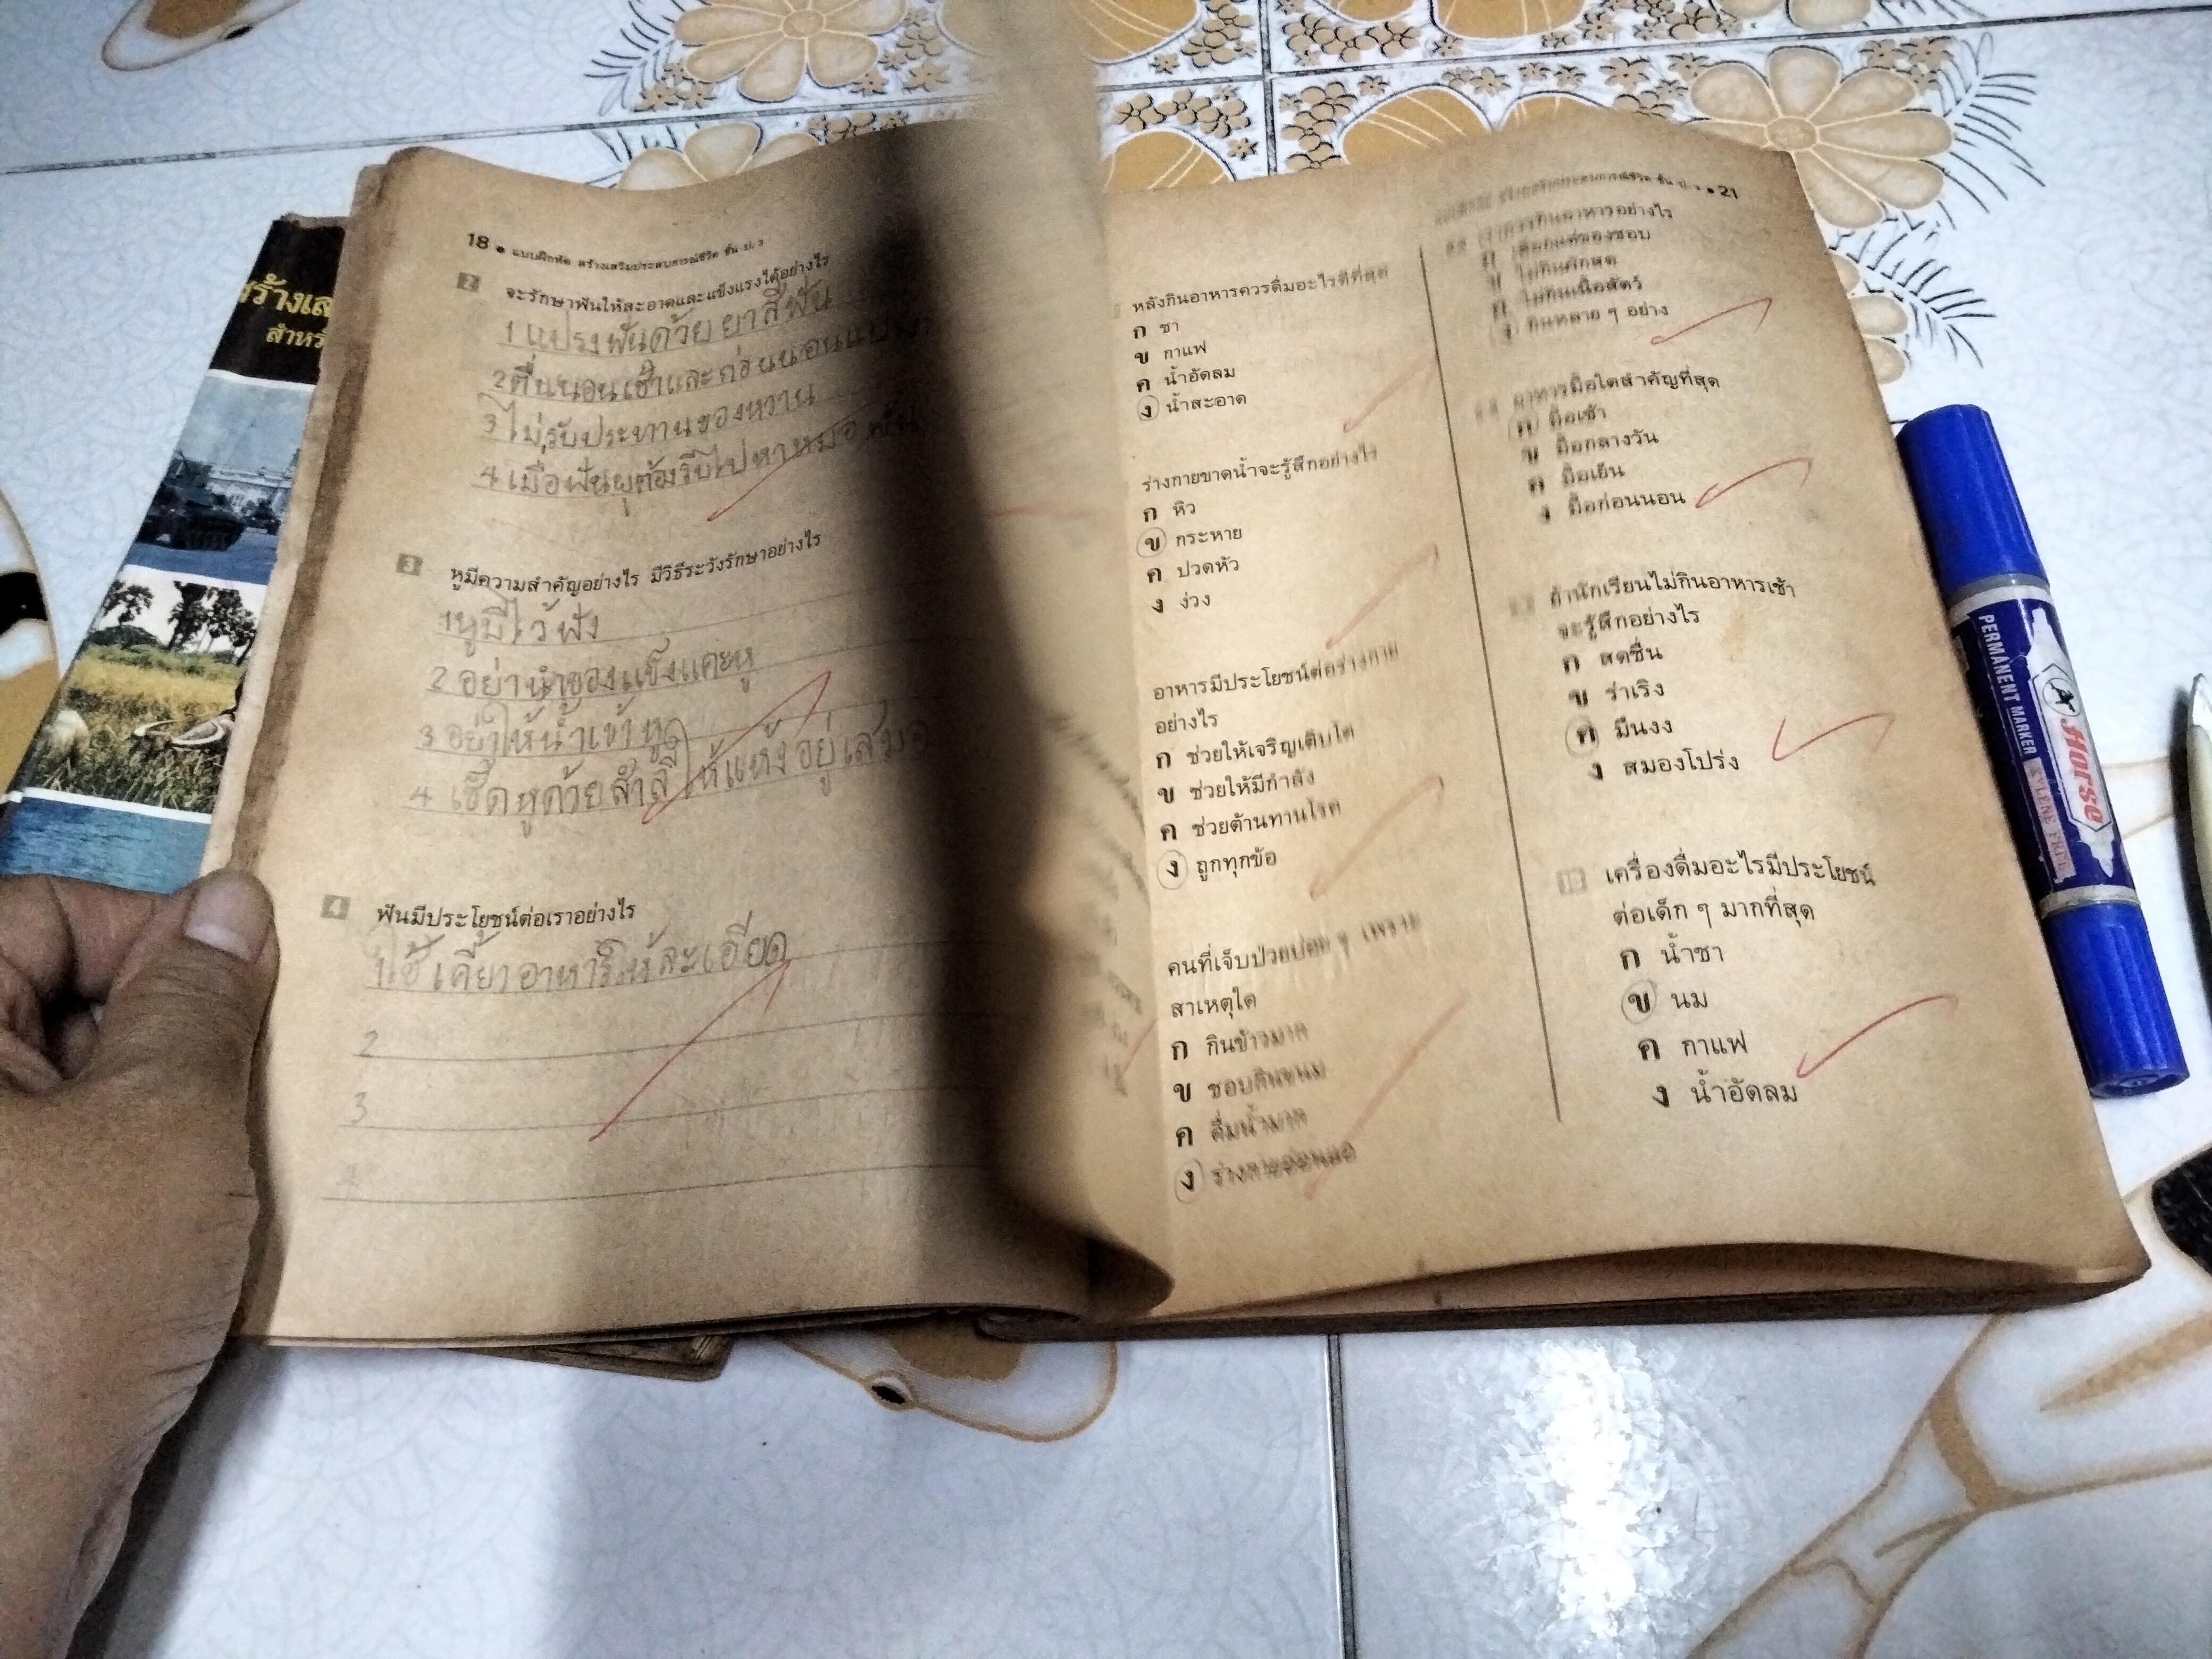 สร้างเส
สำหรั
18 ● แบบฝึกหัด สร้างเสริมประสบการณ์ชีวิต ชั้น ป. 3
2 จะรักษาฟันให้สะอาดและแข็งแรงได้อย่างไร
1 แปรงฟันด้วยยาสีฟัน
2 ตื่นนอนเช้าและก่อนนอนแปรง
3 ไม่รับประทานของหวาน
4 เมื่อฟันผุต้องรีบไปหาหมอฟัน
3 หูมีความสำคัญอย่างไร มีวิธีระวังรักษาอย่างไร
1 หูมีไว้ฟัง
2 อย่านำของแข็งแคะหู
3 อย่าให้น้ำเข้าหู
4 เช็ดหูด้วยสำลีให้แห้งอยู่เสมอ
4 ฟันมีประโยชน์ต่อเราอย่างไร
1 ใช้เคี้ยวอาหารให้ละเอียด
2
3
4
หลังกินอาหารควรดื่มอะไรดีที่สุด
ก ชา
ข กาแฟ
ค น้ำอัดลม
ง น้ำสะอาด
ร่างกายขาดน้ำจะรู้สึกอย่างไร
ก หิว
ข กระหาย
ค ปวดหัว
ง ง่วง
อาหารมีประโยชน์ต่อร่างกาย
อย่างไร
ก ช่วยให้เจริญเติบโต
ข ช่วยให้มีกำลัง
ค ช่วยต้านทานโรค
ง ถูกทุกข้อ
คนที่เจ็บป่วยบ่อย ๆ เพราะ
สาเหตุใด
ก กินข้าวมาก
ข ชอบกินขนม
ค ดื่มน้ำมาก
ง ร่างกายอ่อนแอ
แบบฝึกหัด สร้างเสริมประสบการณ์ชีวิต ชั้น ป. 3 ● 21
การกินอาหารอย่างไร
ก เลือกแต่ของชอบ
ข ไม่กินผักสด
ค ไม่กินเนื้อสัตว์
ง กินหลาย ๆ อย่าง
อาหารมื้อใดสำคัญที่สุด
ก มื้อเช้า
ข มื้อกลางวัน
ค มื้อเย็น
ง มื้อก่อนนอน
ถ้านักเรียนไม่กินอาหารเช้า
จะรู้สึกอย่างไร
ก สดชื่น
ข ร่าเริง
ค มึนงง
ง สมองโปร่ง
เครื่องดื่มอะไรมีประโยชน์
ต่อเด็ก ๆ มากที่สุด
ก น้ำชา
ข นม
ค กาแฟ
ง น้ำอัดลม
Horse
PERMANENT MARKER XYLENE FREE